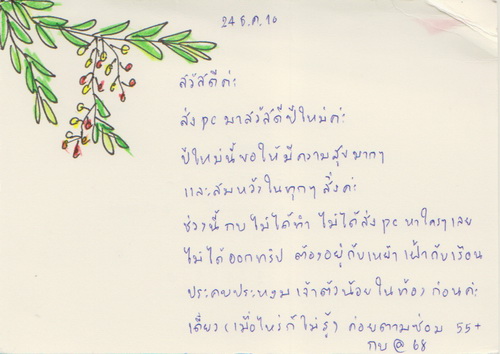 24 ธ.ค. 10
สวัสดีค่ะ
ส่ง pc มาสวัสดีปีใหม่ค่ะ
ปีใหม่นี้ขอให้มีความสุขมากๆ
และสมหวังในทุกๆ สิ่งค่ะ
ช่วงนี้ กบ ไม่ได้ทำ ไม่ได้ส่ง pc หาใครๆ เลย
ไม่ได้ออกทริป ต้องอยู่กับเหย้า เฝ้ากับเรือน
ประคบประหงม เจ้าตัวน้อยในท้อง ก่อนค่ะ
เดี๋ยว (เมื่อไหร่ก็ไม่รู้) ค่อยตามซ่อม 55+
กบ @ 68